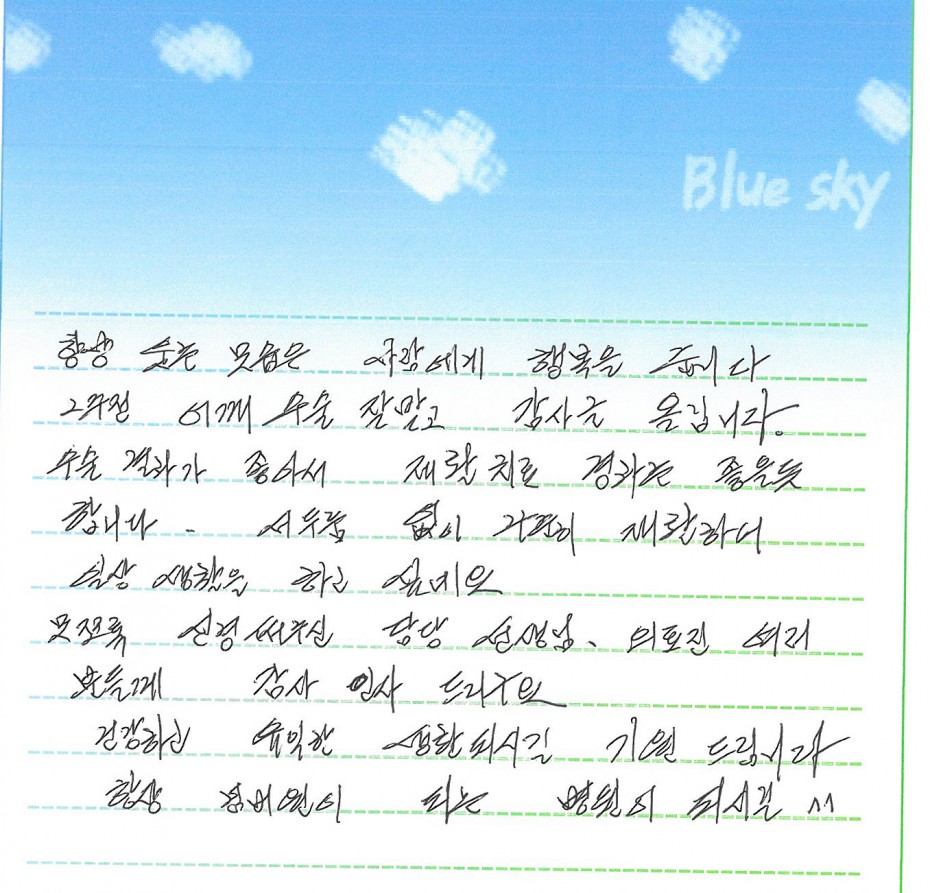 Blue sky
항상 웃는 모습은 사람에게 행복을 줍니다
2주전 어깨 수술 잘받고 감사글 올립니다.
수술 결과가 좋아서 재활치료 경과는 좋을듯
합니다. 서두름 없이 꾸준히 재활하여
일상 생활을 하고 싶네요
모쪼록 신경써주신 담당 선생님, 의료진 여러
분들께 감사 인사 드리구요
건강하고 유익한 생활되시길 기원 드립니다
항상 되는 병원이 되시길 ^^